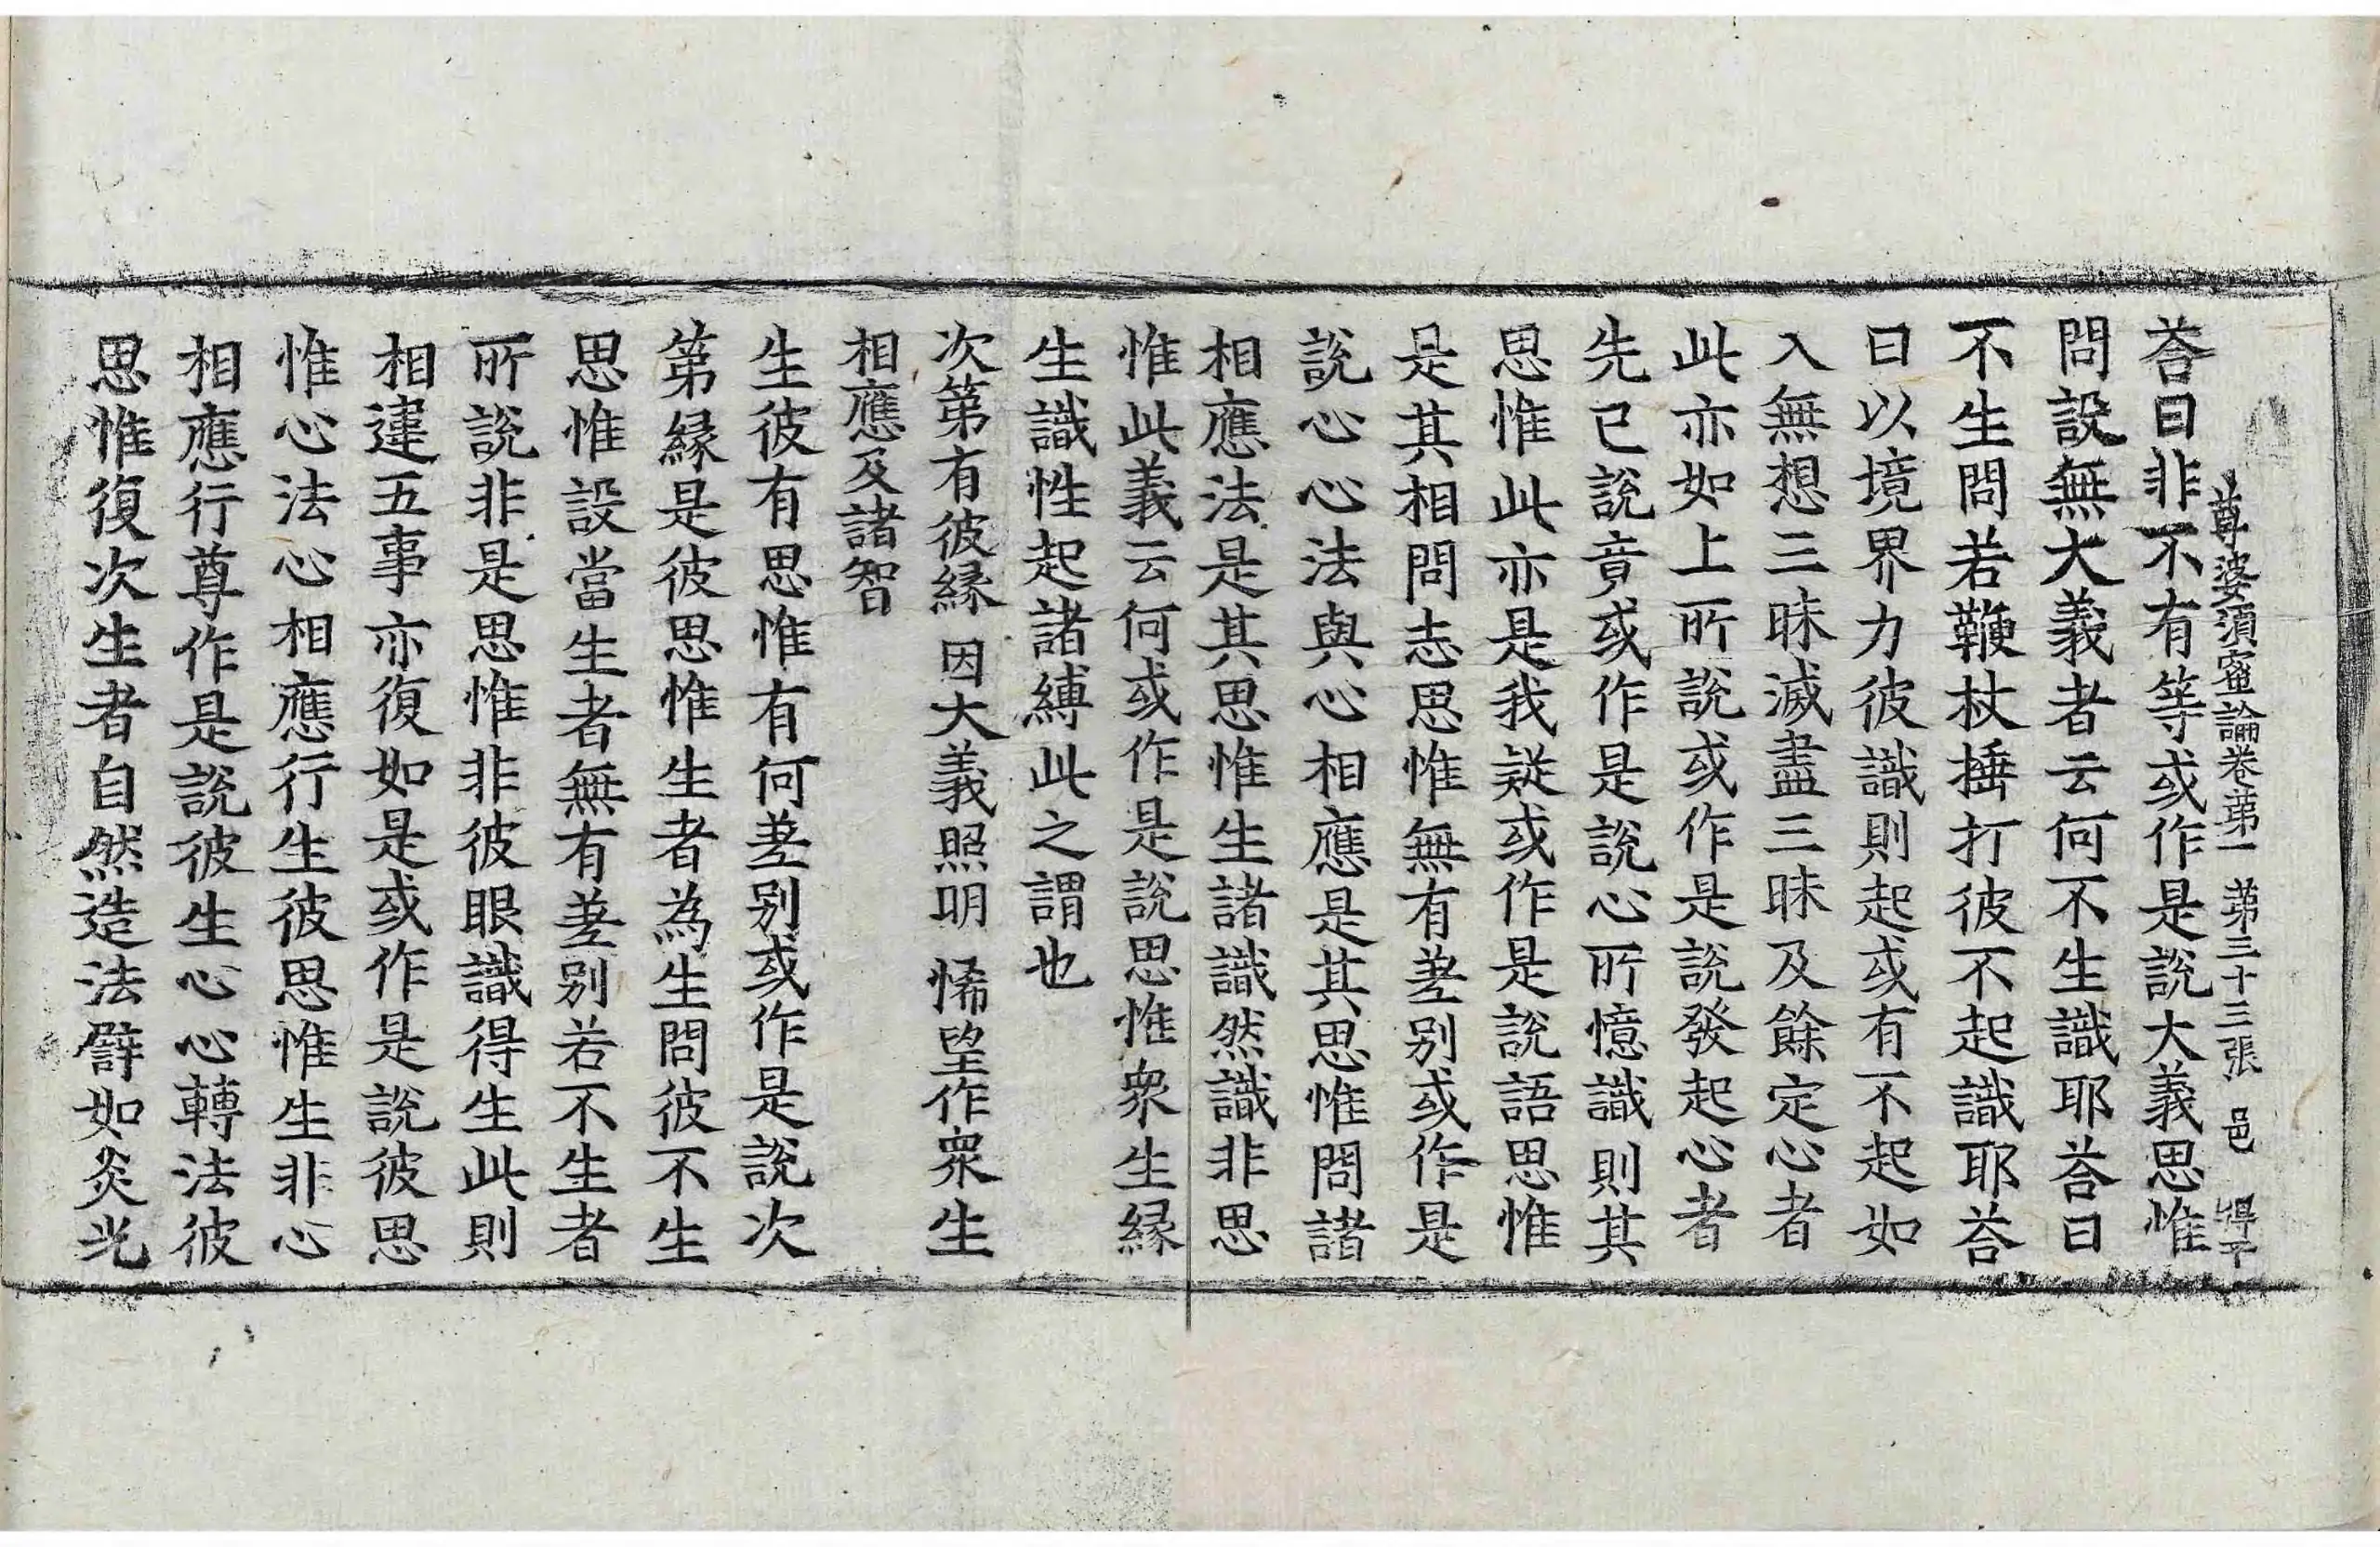 尊婆須蜜論卷苐一 苐三十三張 邑 得千
荅曰非不有等或作是說大義思惟
問設無大義者云何不生識耶荅曰
不生問若鞭杖捶打彼不起識耶荅
曰以境界力彼識則起或有不起如
入無想三昧滅盡三昧及餘定心者
此亦如上所說或作是說發起心者
先已說竟或作是說心所憶識則其
思惟此亦是我疑或作是說語思惟
是其相問志思惟無有差别或作是
說心心法與心相應是其思惟問諸
相應法是其思惟生諸識然識非思
惟此義云何或作是說思惟衆生緣
生識性起諸縛此之謂也
次第有彼緣 因大義照明 悕望作衆生
相應及諸智
生彼有思惟有何差别或作是說次
第緣是彼思惟生者為生問彼不生
思惟設當生者無有差别若不生者
所說非是思惟非彼眼識得生此則
相違五事亦復如是或作是說彼思
惟心法心相應行生彼思惟生非心
相應行尊作是說彼生心心轉法彼
思惟復次生者自然造法譬如炎光